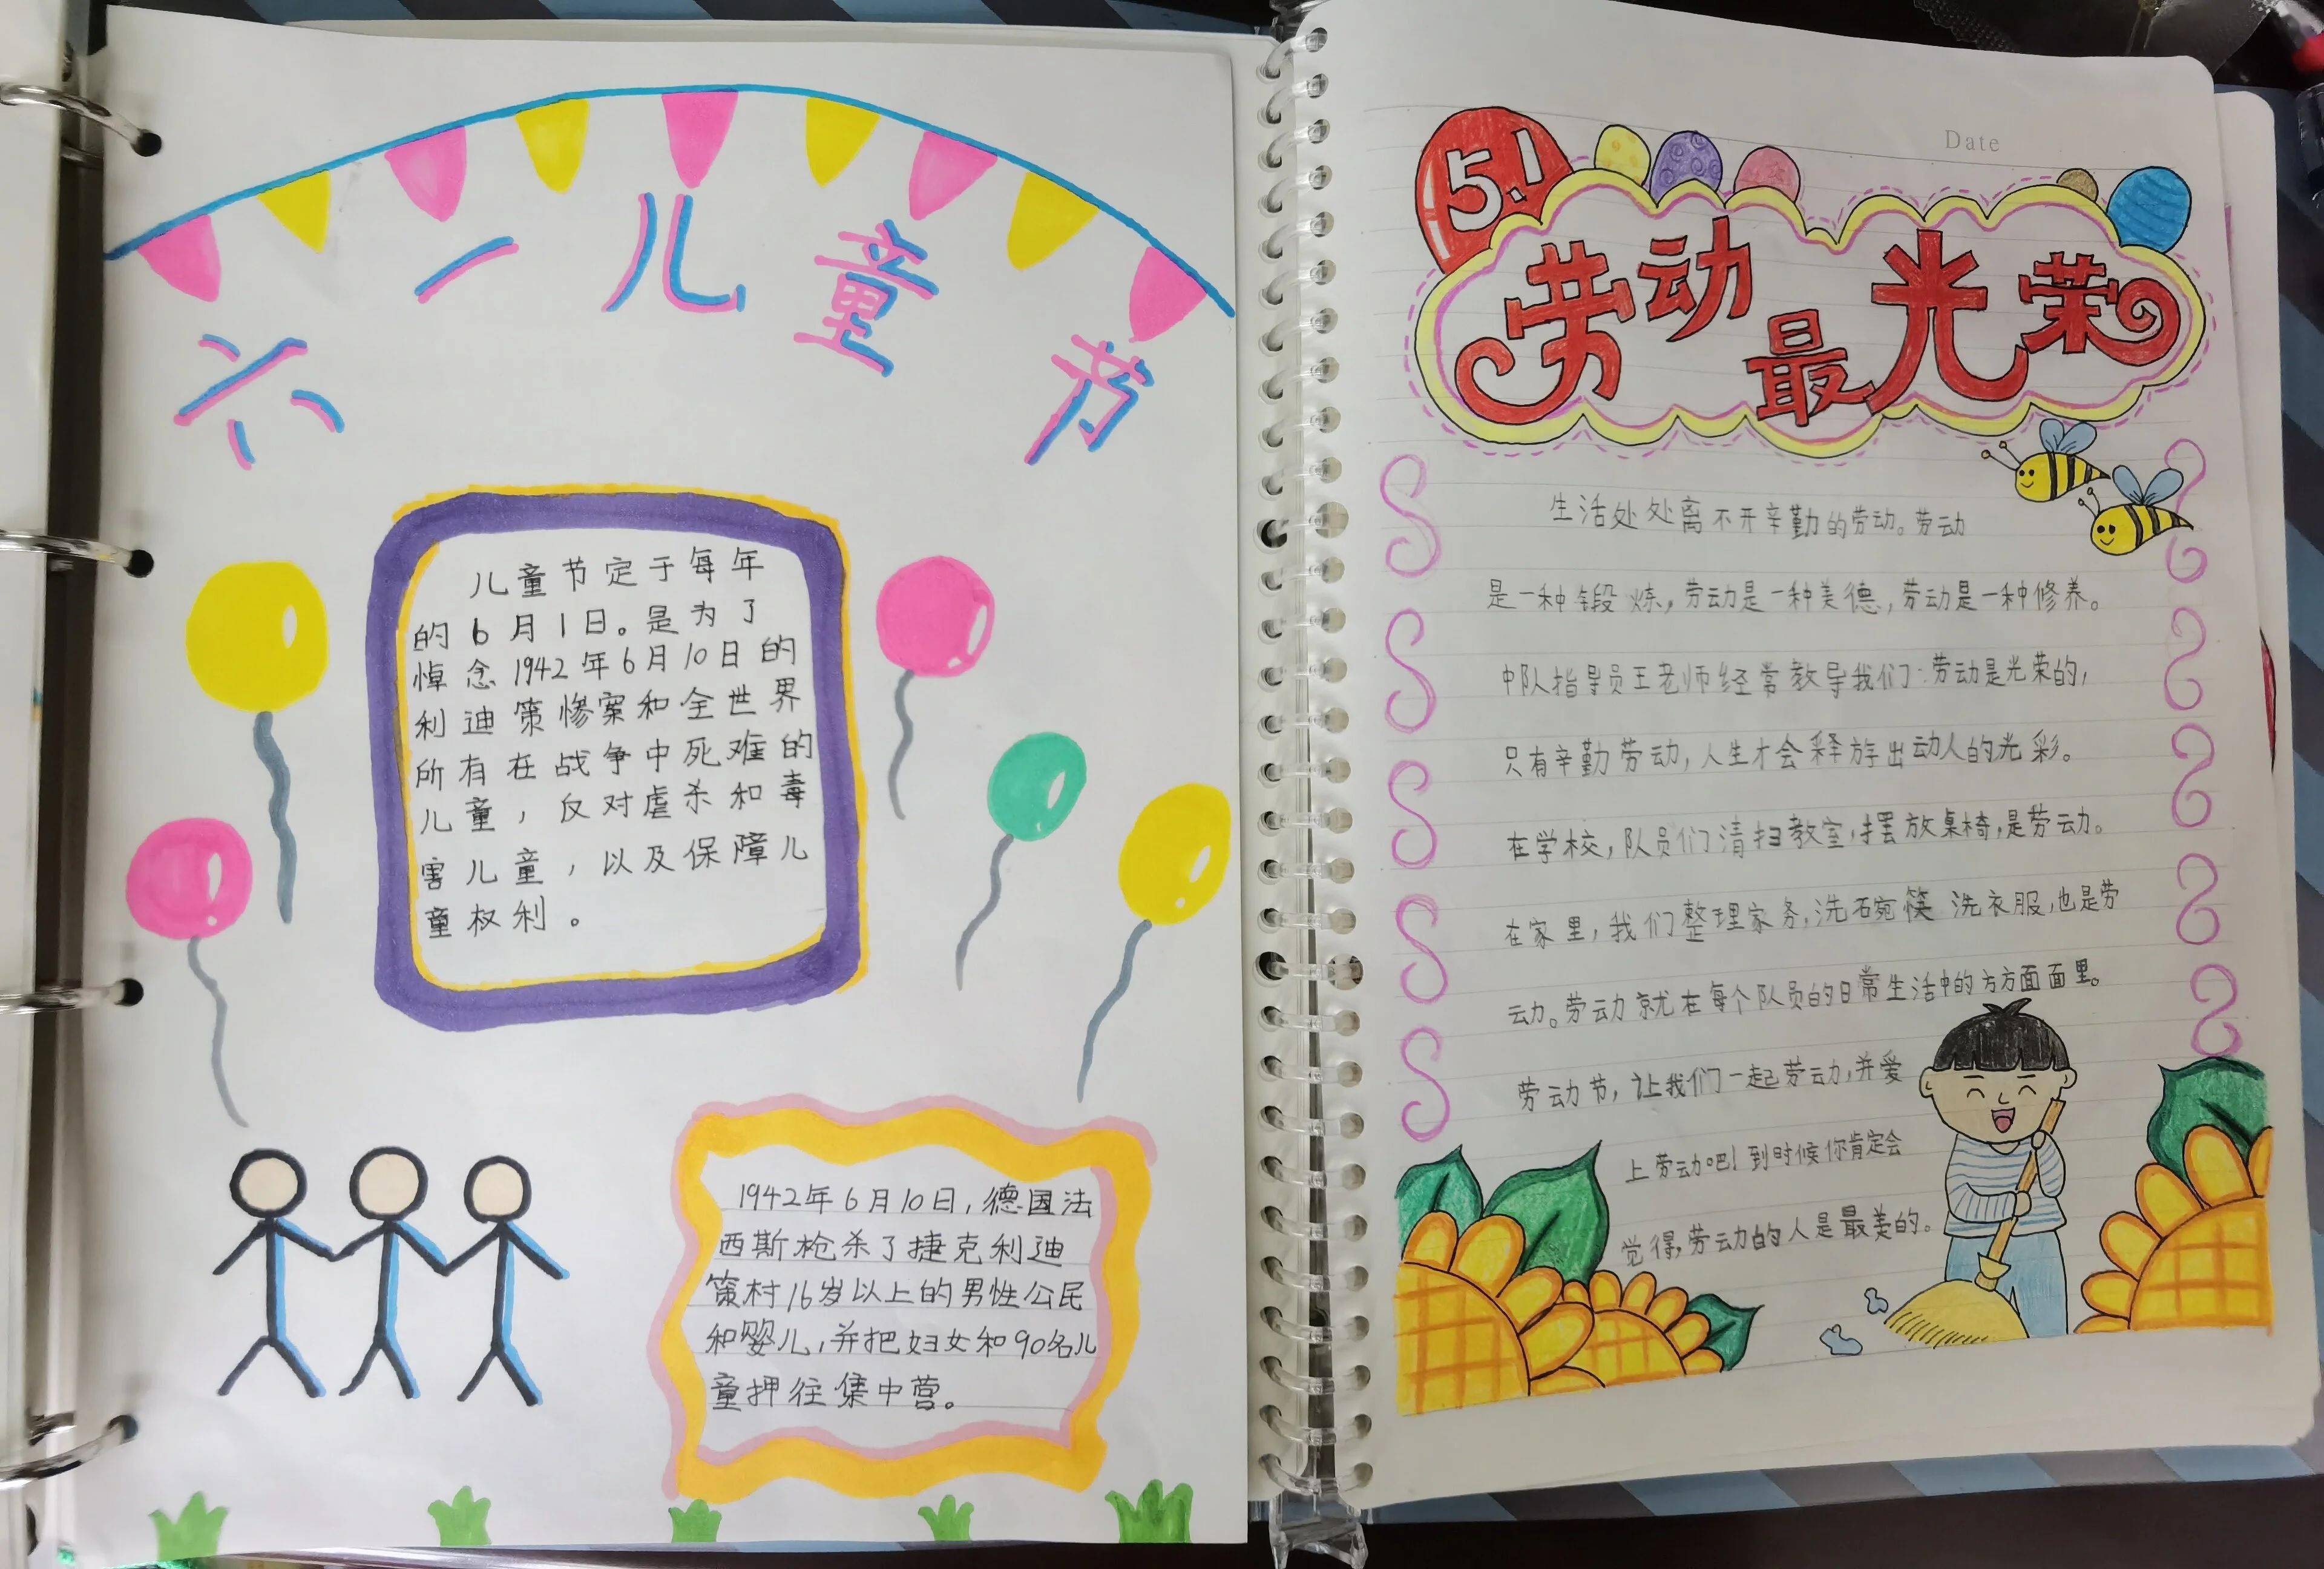 六一儿童节
儿童节定于每年
的6月1日。是为了
悼念1942年6月10日的
利迪策惨案和全世界
所有在战争中死难的
儿童，反对虐杀和毒
害儿童，以及保障儿
童权利。
1942年6月10日，德国法
西斯枪杀了捷克利迪
策村16岁以上的男性公民
和婴儿，并把妇女和90名儿
童押往集中营。
Date
5.1
劳动最光荣
生活处处离不开辛勤的劳动。劳动
是一种锻炼，劳动是一种美德，劳动是一种修养。
中队指导员王老师经常教导我们：劳动是光荣的，
只有辛勤劳动，人生才会释放出动人的光彩。
在学校，队员们清扫教室，摆放桌椅，是劳动。
在家里，我们整理家务，洗碗筷 洗衣服，也是劳
动。劳动就在每个队员的日常生活中的方方面面里。
劳动节，让我们一起劳动，并爱
上劳动吧！到时候你肯定会
觉得，劳动的人是最美的。